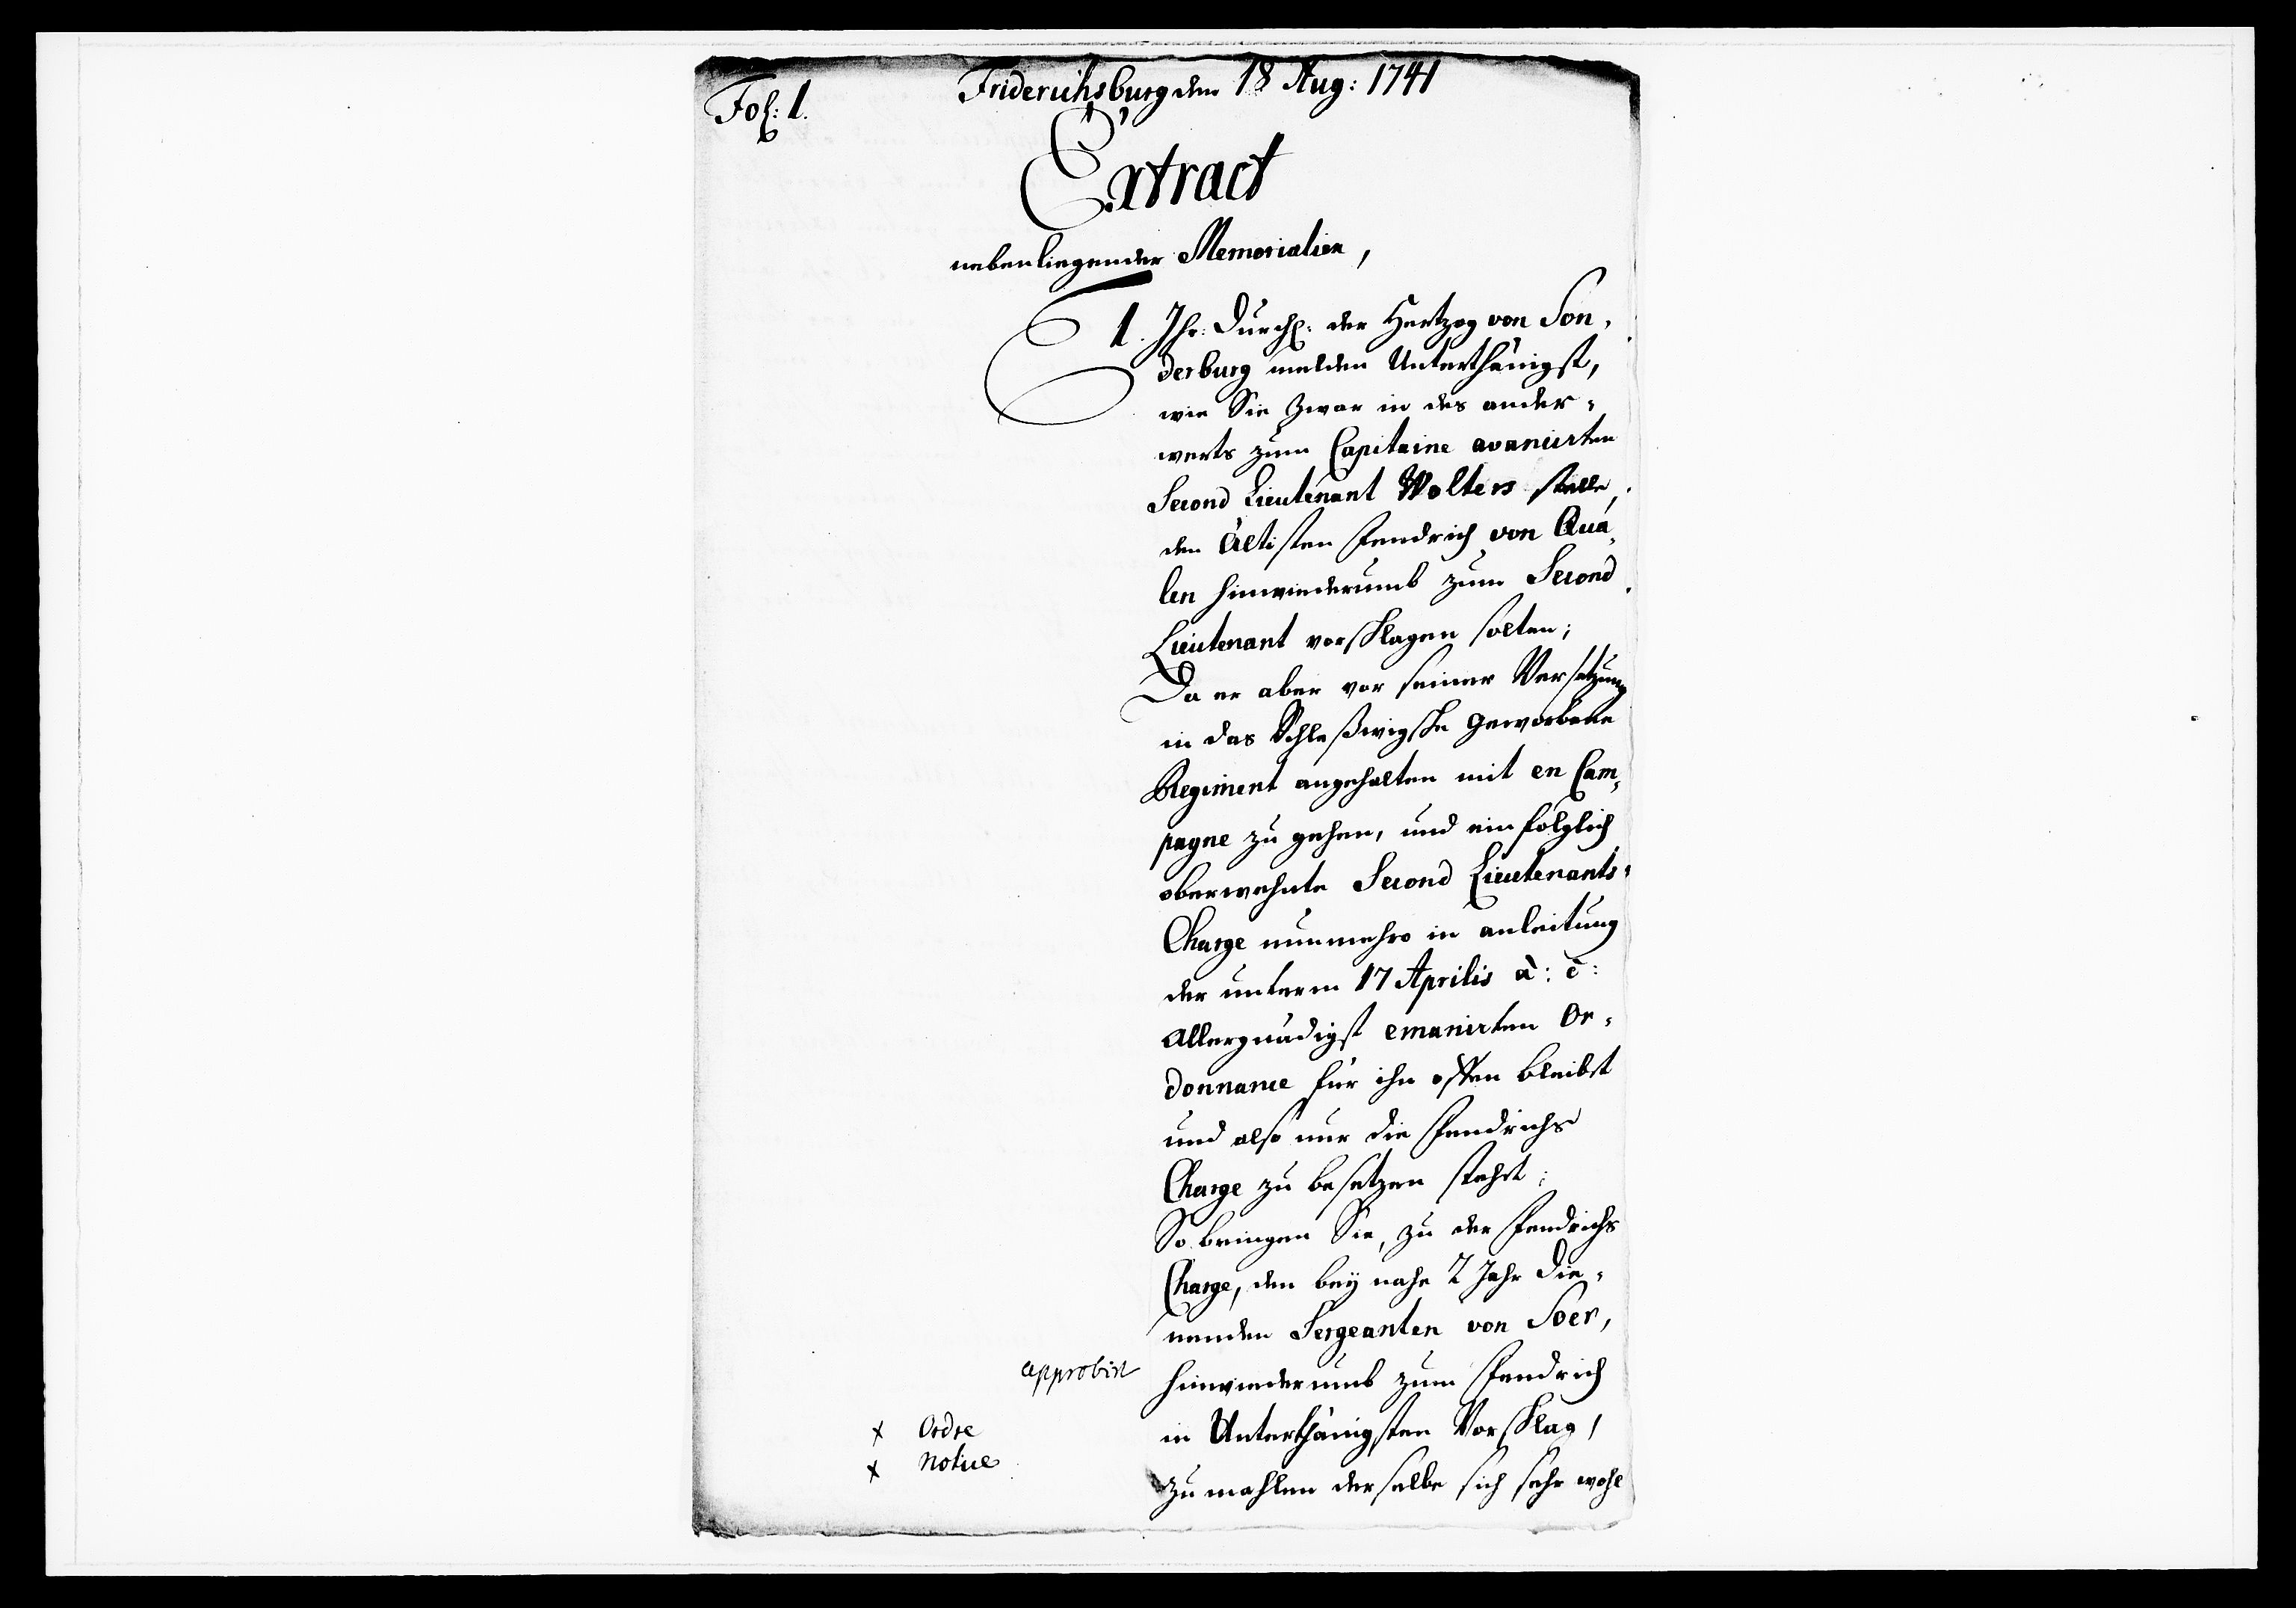 Fol: 1.
Friderichsburg den 18 Aug: 1741
Extract
nebenliegender Memorialien,
1. Ihr: Durchl: der Hertzog von Son-
derburg melden Unterthänigst,
wie Sie zwar in des ander-
werts zum Capitaine avancirten
Second Lieutenant Wolters stelle,
den ältisten Fendrich von Qua-
len hinwiederumb zum Second
Lieutenant vorschlagen solten;
Da er aber vor seiner Versetzung
in das Schleßwigsche geworbene
Regiment angehalten mit en Cam-
pagne zu gehen, und einfolglich
oberwehnte Second Lieutenants-
Charge nunmehro in anleitung
der unterm 17 Aprilis à: c:
Allergnädigst emanirten Or-
donnance für ihn offen bleibt
und also nur die Fendrichs
Charge zu besetzen stehet;
So bringen Sie, zu der Fendrichs
Charge, den bey nahe 2 Jahr die-
nenden Sergeanten von Soer,
approbirt
hinwiederumb zum Fendrich
x Ordre
in Unterthänigsten Vorschlag,
x Notice
zumahlen derselbe sich sehr wohl